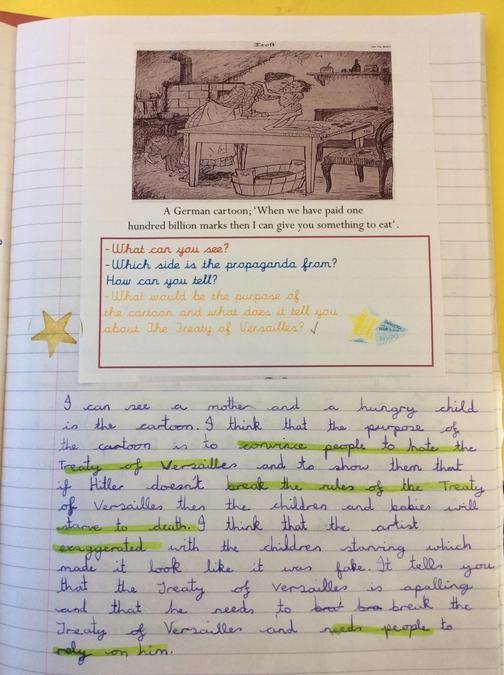 A German cartoon; 'When we have paid one
hundred billion marks then I can give you something to eat'.
-What can you see?
-Which side is the propaganda from?
How can you tell?
-What would be the purpose of
the cartoon and what does it tell you
about The Treaty of Versailles?
I can see a mother and a hungry child
in the cartoon. I think that the purpose of
the cartoon is to convince people to hate the
Treaty of Versailles and to show them that
if Hitler doesn't break the rules of the Treaty
of Versailles then the children and babies will
starve to death. I think that the artist
exaggerated with the children starving which
made it look like it was fake. It tells you
that the Treaty of Versailles is apalling
and that he needs to break the
Treaty of Versailles and needs people to
rely on him.